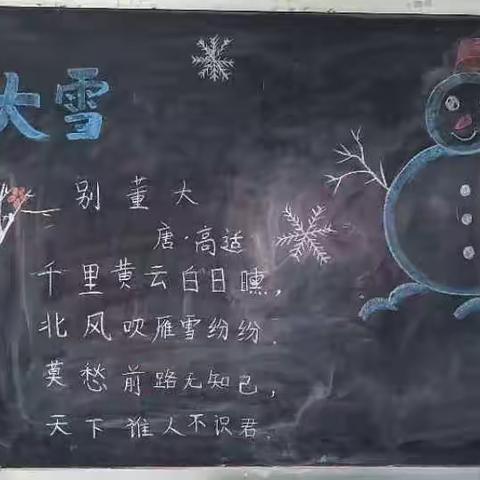 大雪
别董大
唐·高适
千里黄云白日曛，
北风吹雁雪纷纷.
莫愁前路无知己，
天下谁人不识君.